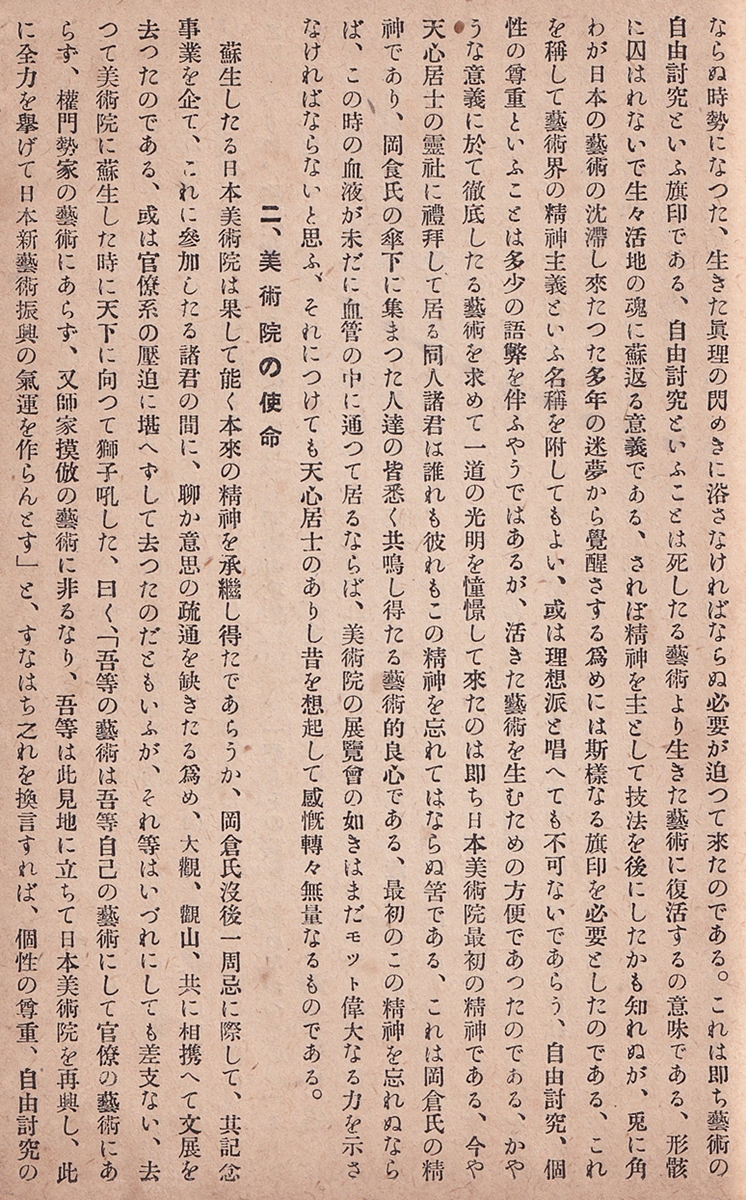 ならぬ時勢になつた、生きた眞理の閃めきに浴さなければならぬ必要が迫つて來たのである。これは即ち藝術の
自由討究といふ旗印である、自由討究といふことは死したる藝術より生きた藝術に復活するの意味である、形骸
に囚はれないで生々活地の魂に蘇返る意義である、されぼ精神を主として技法を後にしたかも知れぬが、兎に角
わが日本の藝術の沈滯し來たつた多年の迷夢から覺醒さする爲めには斯樣なる旗印を必要としたのである、これ
を稱して藝術界の精神主義といふ名稱を附してもよい、或は理想派と唱へても不可ないであらう、自由討究、個
性の尊重といふことは多少の語弊を伴ふやうではあるが、活きた藝術を生むための方便であつたのである、かや
うな意義に於て徹底したる藝術を求めて一道の光明を憧憬して來たのは即ち日本美術院最初の精神である、今や
天心居士の靈社に禮拜して居る同人諸君は誰れも彼れもこの精神を忘れてはならぬ筈である、これは岡倉氏の精
神であり、岡食氏の傘下に集まつた人達の皆悉く共鳴し得たる藝術的良心である、最初のこの精神を忘れぬなら
ば、この時の血液が未だに血管の中に通つて居るならば、美術院の展覽會の如きはまだモット偉大なる力を示さ
なければならないと思ふ、それにつけても天心居士のありし昔を想起して感慨轉々無量なるものである。
二、美術院の使命
蘇生したる日本美術院は果して能く本來の精神を承繼し得たであらうか、岡倉氏沒後一周忌に際して、其記念
事業を企て、これに參加したる諸君の間に、聊か意思の疏通を缺きたる爲め、大觀、觀山、共に相携へて文展を
去つたのである、或は官僚系の壓迫に堪へずして去つたのだともいふが、それ等はいづれにしても差支ない、去
つて美術院に蘇生した時に天下に向つて獅子吼した、曰く、「吾等の藝術は吾等自己の藝術にして官僚の藝術にあ
らず、權門勢家の藝術にあらず、又師家摸倣の藝術に非るなり、吾等は此見地に立ちて日本美術院を再興し、此
に全力を擧げて日本新藝術振興の氣運を作らんとす」と、すなはち之れを換言すれば、個性の尊重、自由討究の